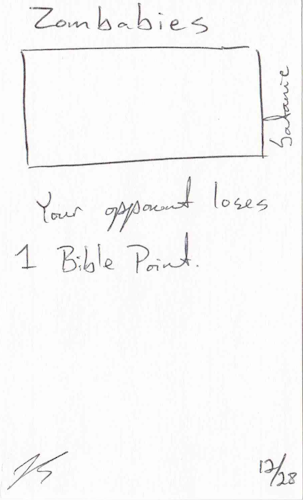 Zombabies
Satanic
Your opponent loses
1 Bible Point.
12/28